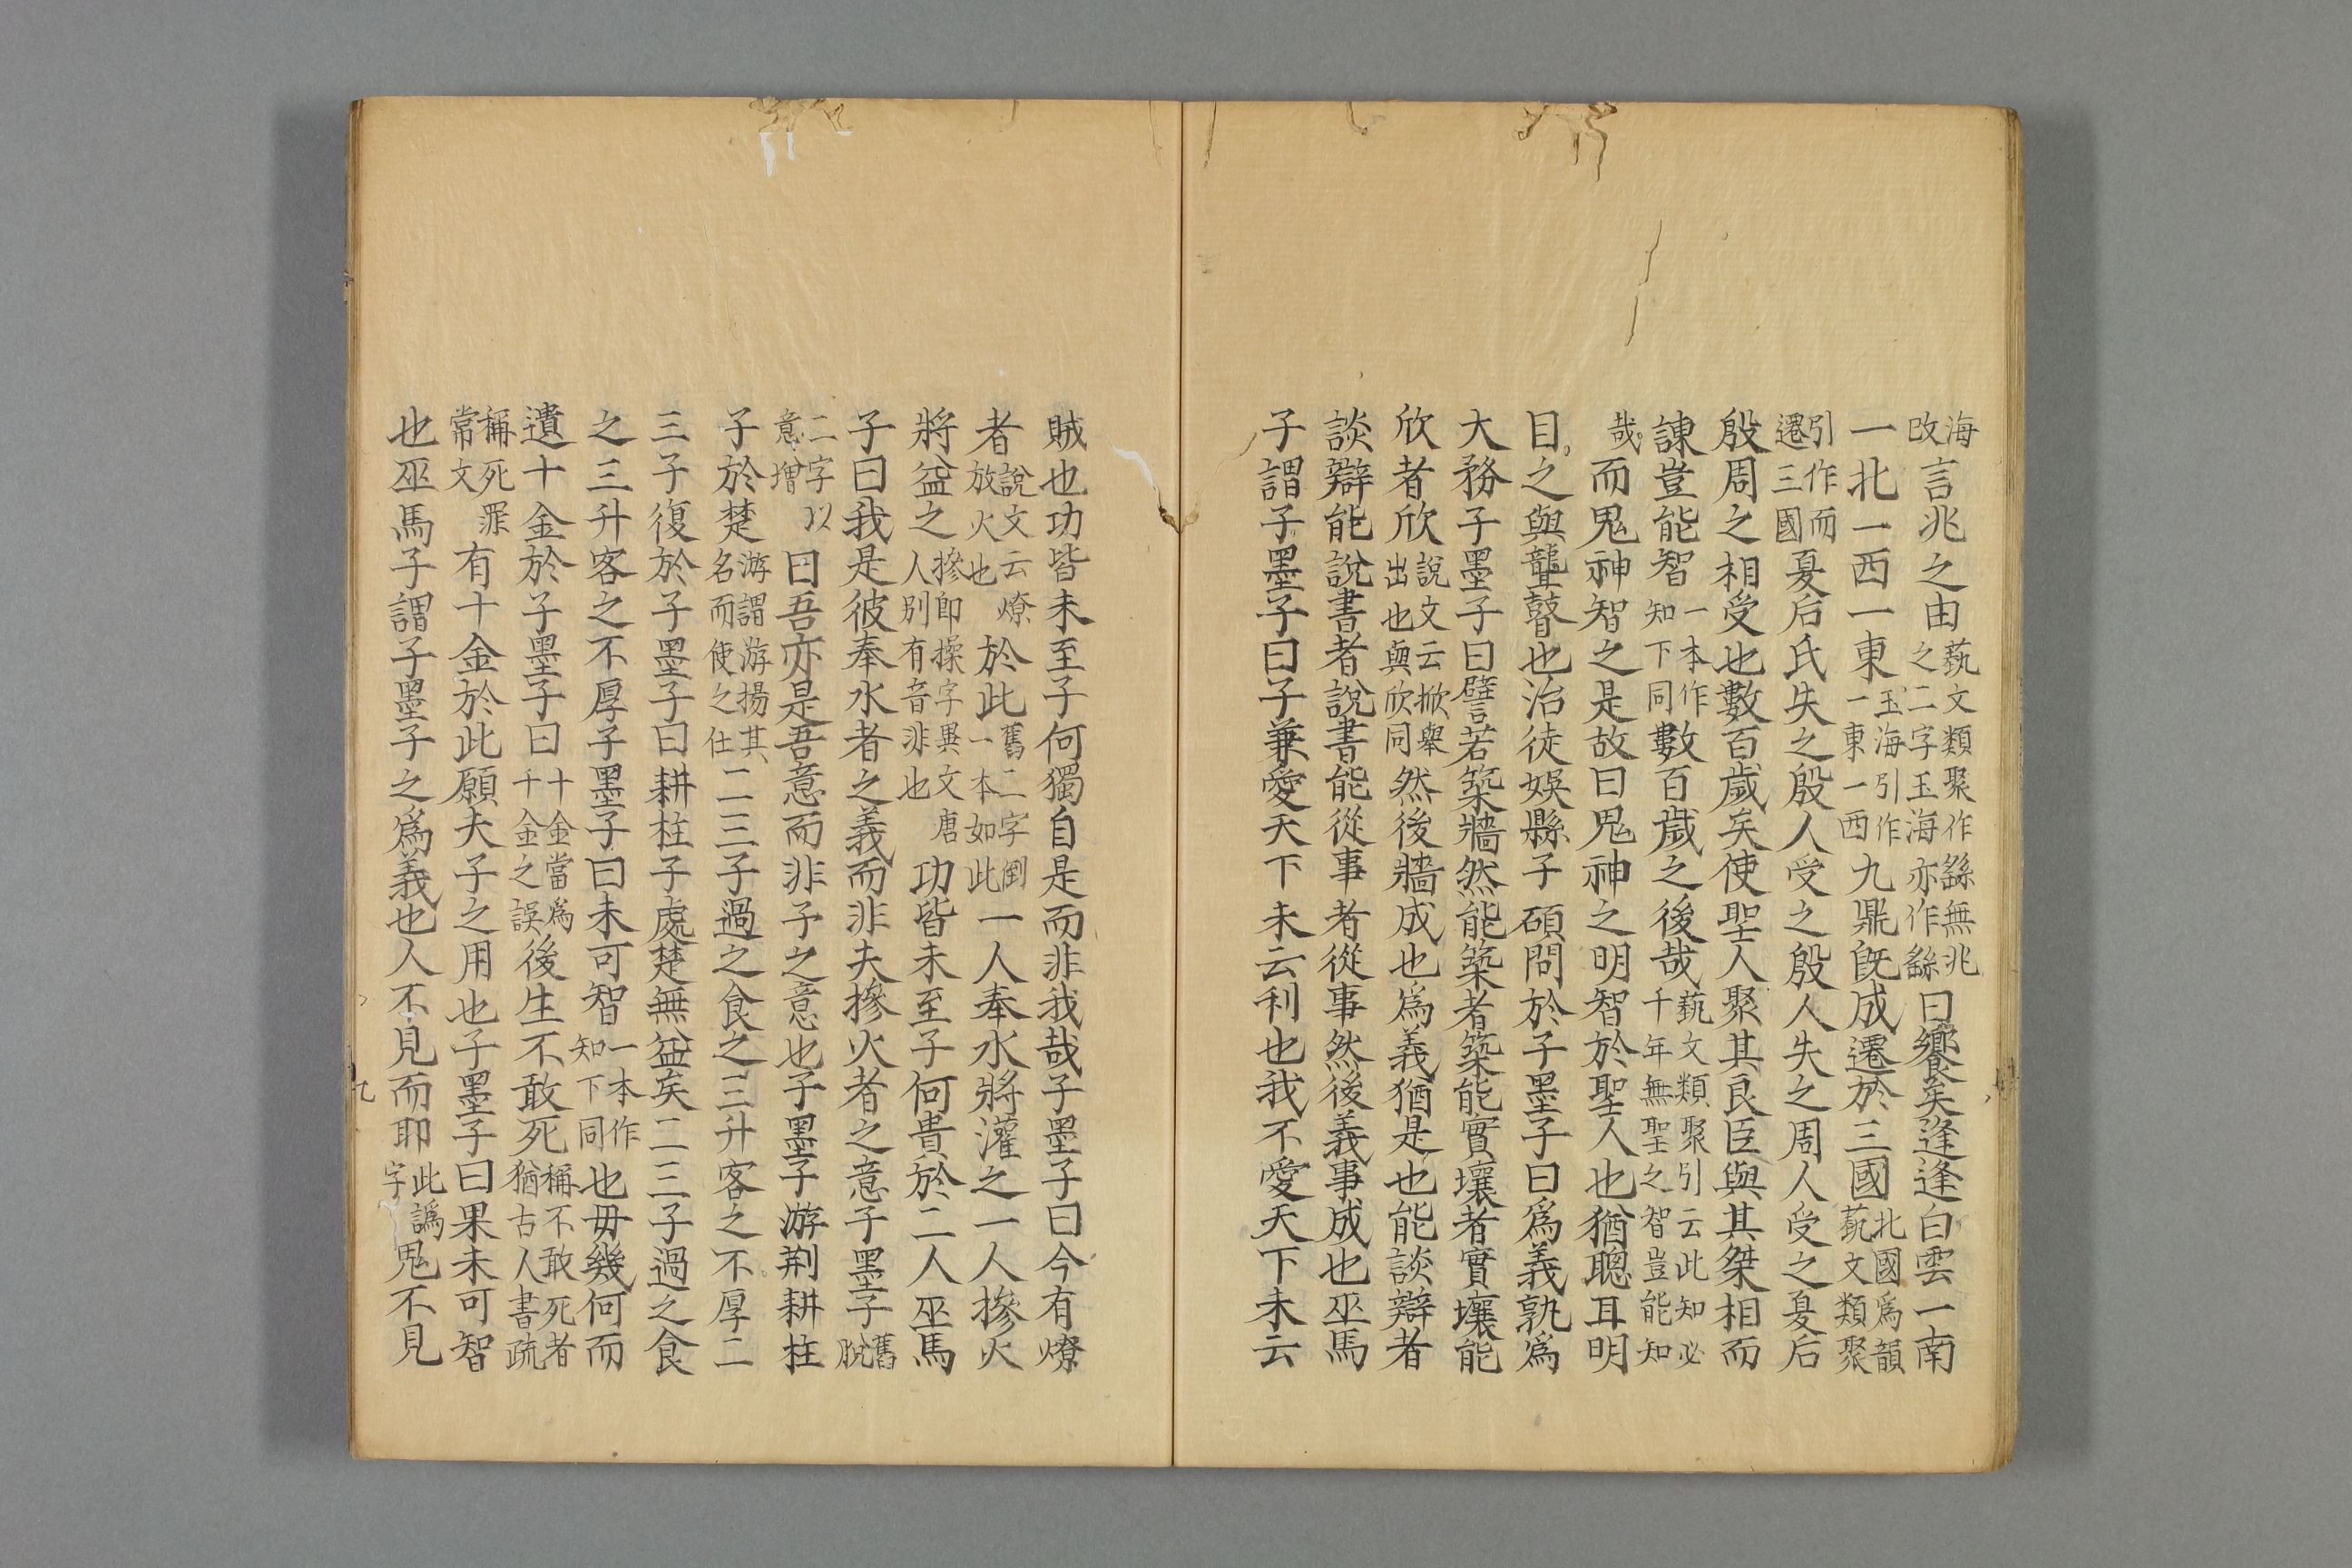 海改言兆之由藝文類聚作繇無兆之二字玉海亦作繇曰饗矣逢逢白雲一南
一北一西一東玉海引作一東一西九鼎旣成遷於三國北國爲韻藝文類聚
引作而遷三國夏后氏失之殷人受之殷人失之周人受之夏后
殷周之相受也數百歲矣使聖人聚其良臣與其桀相而
諫豈能智一本作知下同數百歲之後哉藝文類聚引云此知必千年無聖之智豈能知
哉而鬼神智之是故曰鬼神之明智於聖人也猶聰耳明
目之與聾瞽也治徒娛縣子碩問於子墨子曰爲義孰爲
大務子墨子曰譬若築牆然能築者築能實壤者實壤能
欣者欣說文云掀舉出也與欣同然後牆成也爲義猶是也能談辯者
談辯能說書者說書能從事者從事然後義事成也巫馬
子謂子墨子曰子兼愛天下未云利也我不愛天下未云
賊也功皆未至子何獨自是而非我哉子墨子曰今有燎
者說文云燎放火也於此舊二字倒一本如此一人奉水將灌之一人摻火
將益之摻卽操字異文唐人别有音非也功皆未至子何貴於二人巫馬
子曰我是彼奉水者之義而非夫摻火者之意子墨子舊脫
二字以意增曰吾亦是吾意而非子之意也子墨子游荆耕柱
子於楚游謂游揚其名而使之仕二三子過之食之三升客之不厚二
三子復於子墨子曰耕柱子處楚無益矣二三子過之食
之三升客之不厚子墨子曰未可智一本作知下同也毋幾何而
遺十金於子墨子曰十金當爲千金之誤後生不敢死稱不敢死者猶古人書疏
稱死罪常文有十金於此願夫子之用也子墨子曰果未可智
也巫馬子謂子墨子之爲義也人不見而耶此字譌鬼不見
九